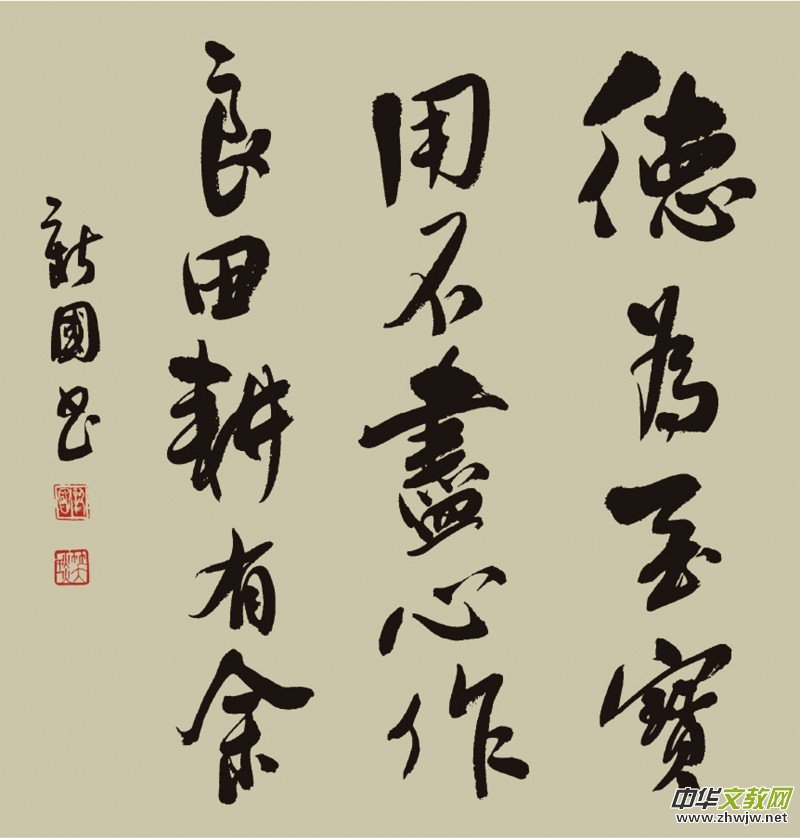 德為至寶
用不盡心作
良田耕有余
新國书
中华文教网
www.zhwjw.net